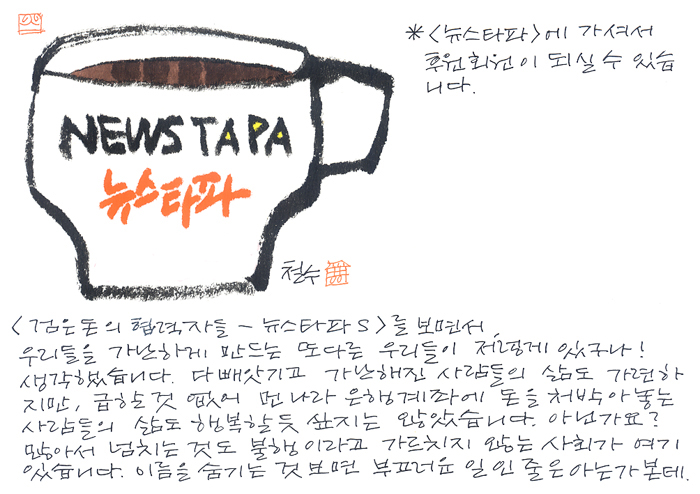 *<뉴스타파>에 가셔서
후원회원이 되실 수 있습
니다.
NEWSTAPA
뉴스타파
철수
<검은돈의 협력자들 - 뉴스타파 S>를 보면서,
우리들을 가난하게 만드는 또다른 우리들이 저렇게 있구나!
생각했습니다. 다 빼앗기고 가난해진 사람들의 삶도 가련하
지만, 급할 것 없이 먼나라 은행계좌에 돈을 처박아 놓는
사람들의 삶도 행복할 듯 싶지는 않았습니다. 아닌가요?
많아서 넘치는 것도 불행이라고 가르치지 않는 사회가 여기
있습니다. 이름을 숨기는 것 보면 부끄러운 일인 줄은 아는가 본데.